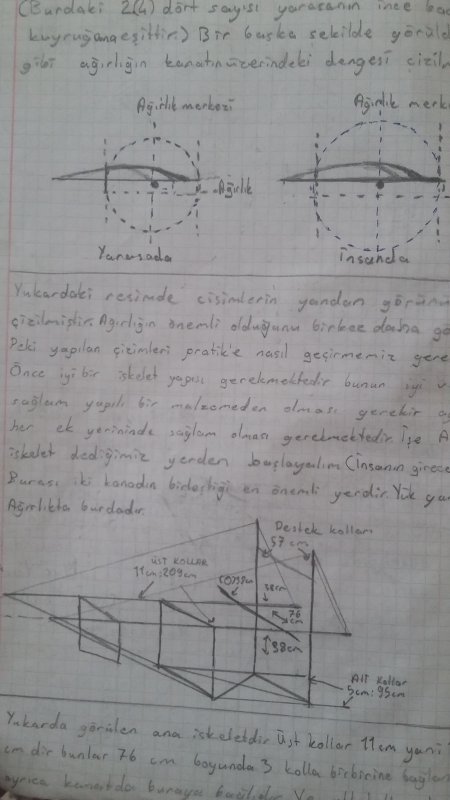 (Burdaki 2(4) dört sayısı yarasanın ince
kuyruğana eşittir.) Bir başka sekilde
gibi ağırlığın kanatınüzerindeki dengesi
Ağırlık merkezi
Ağırlık
Ağırlık
Yarasada
insanda
Yukardaki resimde cisimlerin yandan
çizilmiştir. Ağırlığın önemli olduğunu birkez daha
Peki yapılan çizimleri pratik'e nasıl geçirmemiz
Önce iyi bir iskelet yapısı gerekmektedir bunun iyi
sağlam yapılı bir malzemeden olması gerekir
her ek yerininde sağlam olması gerekmektedir. İşe
iskelet dediğimiz yerden başlayalım (insanın
Burası iki kanadın birleştiği en önemli yerdir. Yük
Ağırlıkta burdadır.
Destek kolları
57 cm
ÜST KOLLAR
11cm:209cm
38cm
76
cm
38cm
Alt kollar
5cm:95cm
Yukarda görülen ana iskeletdir Üst kollar 11cm yani
cm dir bunlar 76 cm boyunda 3 kolla birbirine
ayrıca kanatda buraya bağlıdır.